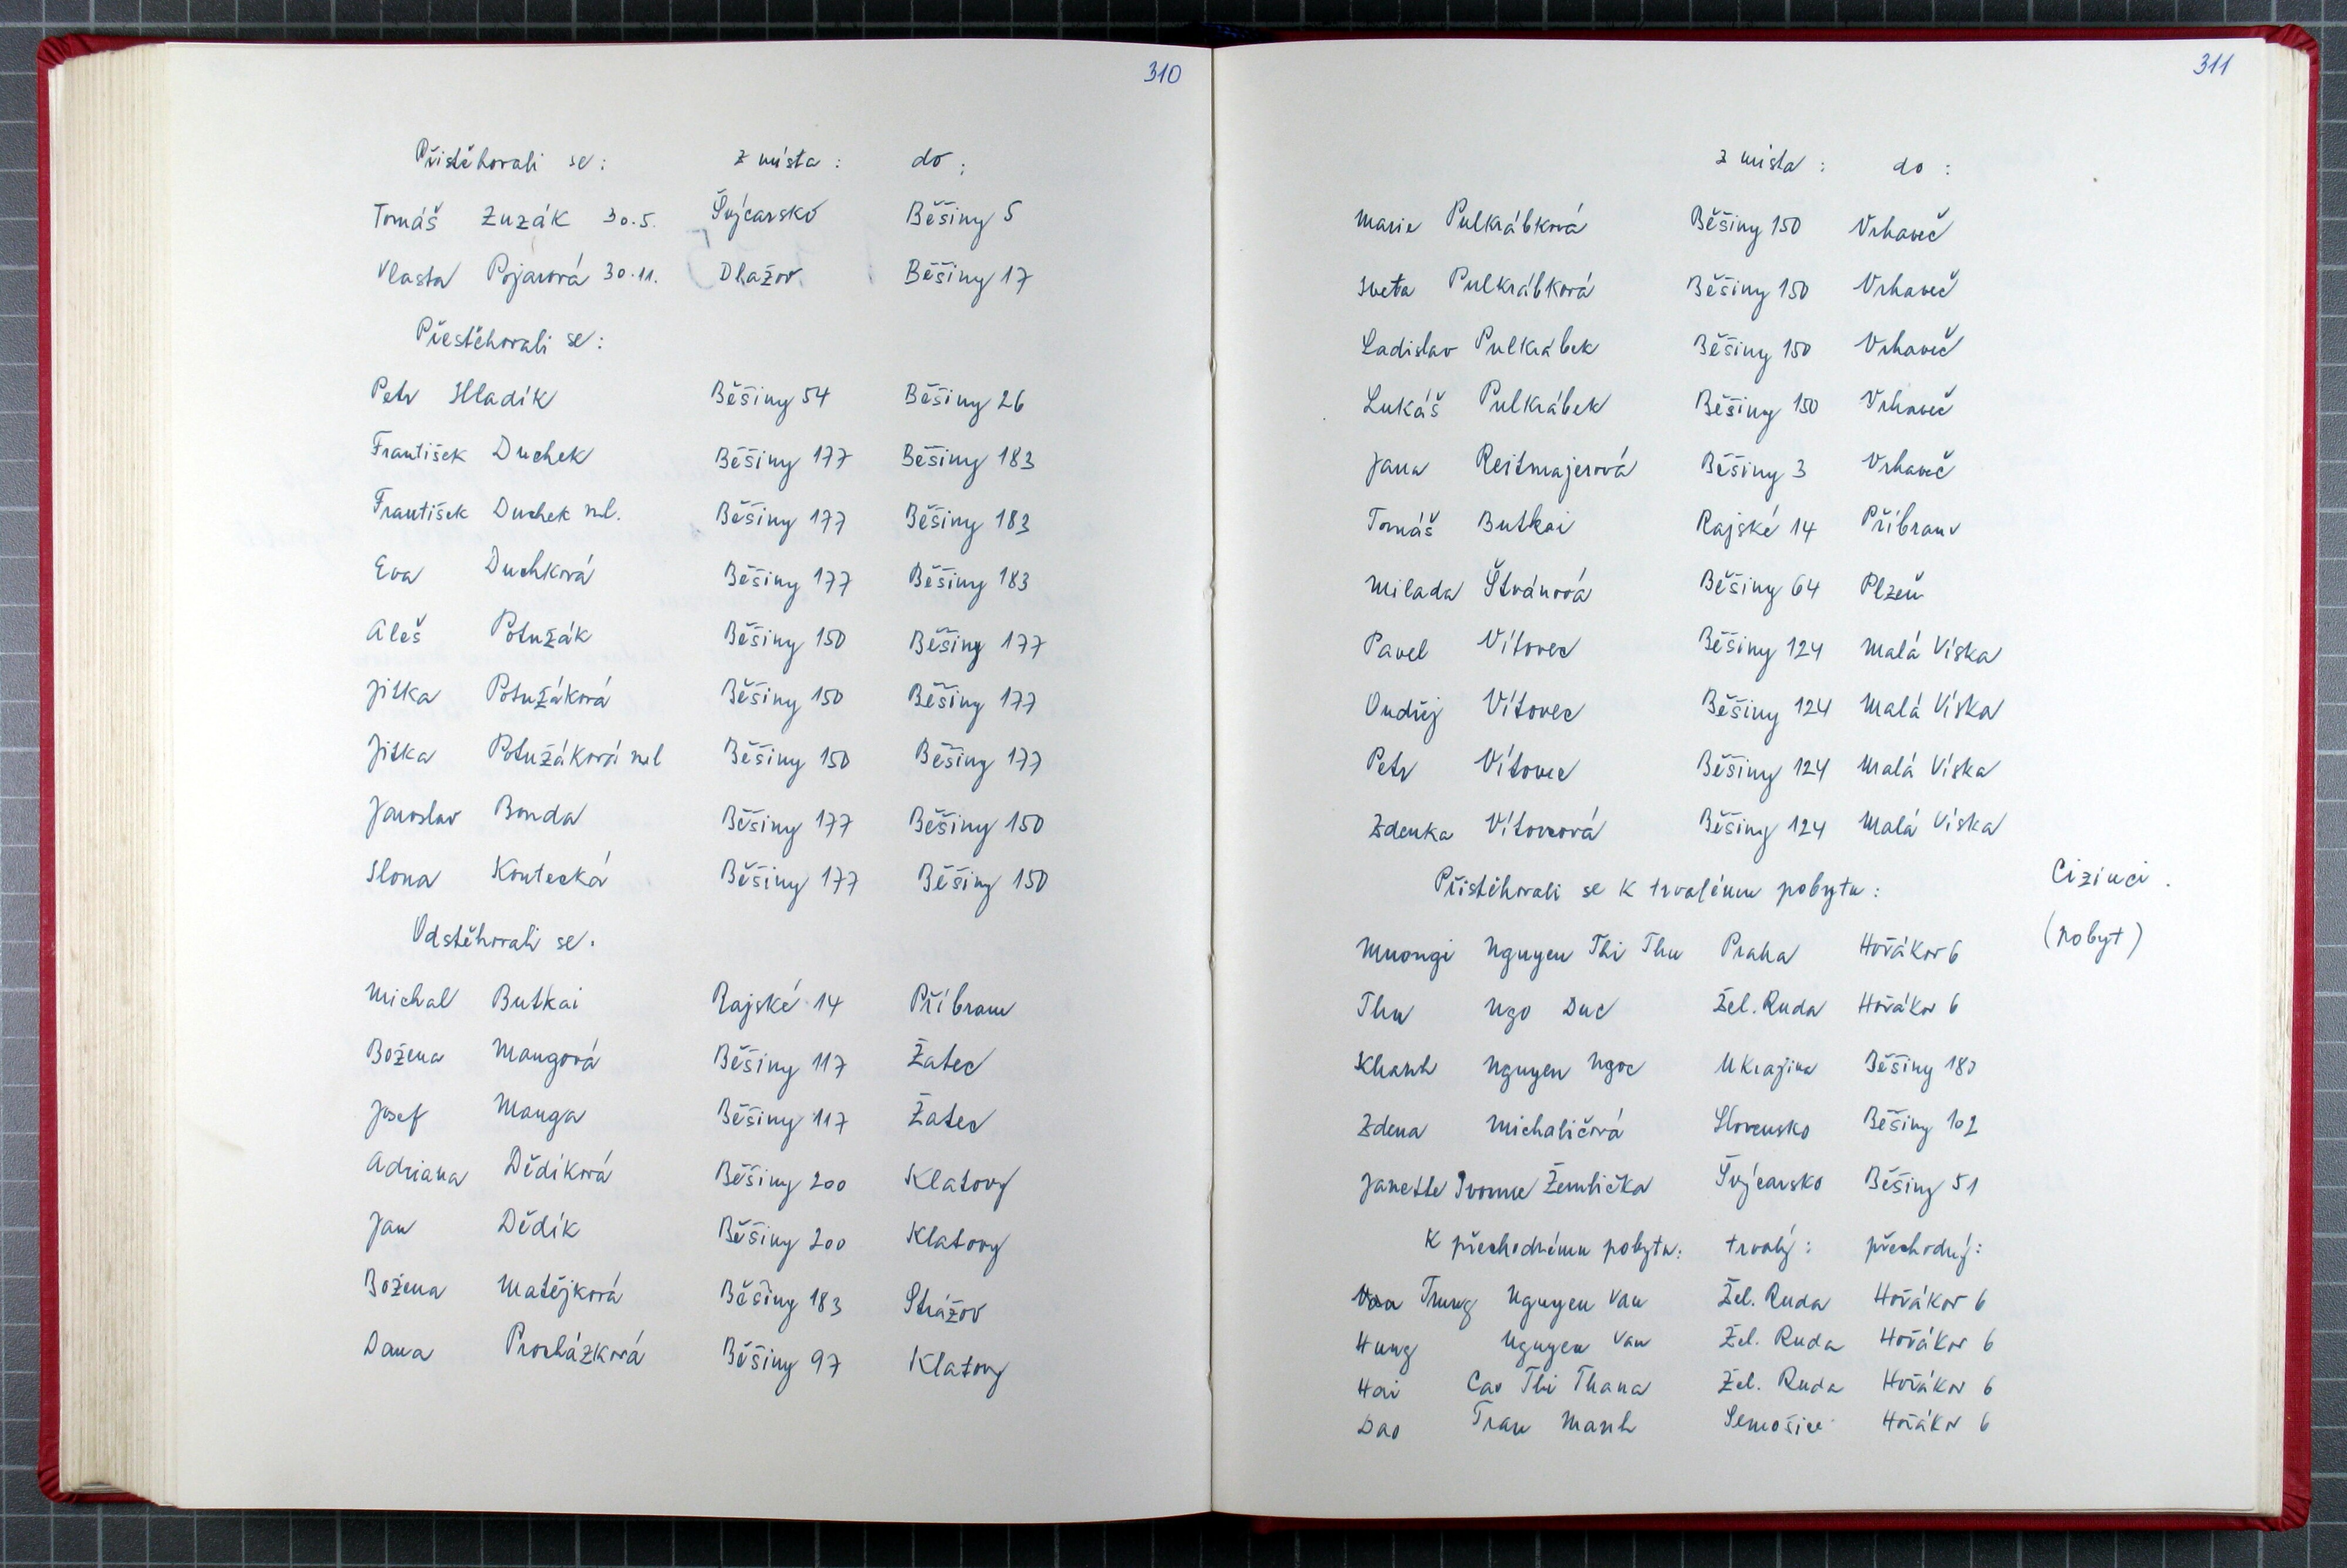 310
Přistěhovali se: z místa: do:
Tomáš Zuzák 30.5. Švýcarsko Běšiny 5
Vlasta Pojarová 30.11. Dlažov Běšiny 17
Přestěhovali se:
Petr Hladík Běšiny 54 Běšiny 26
František Duchek Běšiny 177 Běšiny 183
František Duchek ml. Běšiny 177 Běšiny 183
Eva Duchková Běšiny 177 Běšiny 183
Aleš Potužák Běšiny 150 Běšiny 177
Jitka Potužáková Běšiny 150 Běšiny 177
Jitka Potužáková ml Běšiny 150 Běšiny 177
Jaroslav Bonda Běšiny 177 Běšiny 150
Ilona Koutecká Běšiny 177 Běšiny 150
Odstěhovali se.
Michal Butkai Rajské 14 Příbram
Božena Mangová Běšiny 117 Žatec
Josef Manga Běšiny 117 Žatec
Adriana Dědíková Běšiny 200 Klatovy
Jan Dědík Běšiny 200 Klatovy
Božena Matějková Běšiny 183 Strážov
Dana Procházková Běšiny 97 Klatovy
311
z místa: do:
Marie Pulkrábková Běšiny 150 Vrhaveč
Iveta Pulkrábková Běšiny 150 Vrhaveč
Ladislav Pulkrábek Běšiny 150 Vrhaveč
Lukáš Pulkrábek Běšiny 150 Vrhaveč
Jana Reitmajerová Běšiny 3 Vrhaveč
Tomáš Butkai Rajské 14 Příbram
Milada Štvánová Běšiny 64 Plzeň
Pavel Vítovec Běšiny 124 Malá Víska
Ondřej Vítovec Běšiny 124 Malá Víska
Petr Vítovec Běšiny 124 Malá Víska
Zdenka Vítovcová Běšiny 124 Malá Víska
Přistěhovali se k trvalému pobytu: Cizinci.
(pobyt)
Muongi Nguyen Thi Thu Praha Hořákov 6
Thu Ngo Duc Žel. Ruda Hořákov 6
Khanh Nguyen Ngoc Ukrajina Běšiny
Zdena Michaličová Slovensko Běšiny 102
Janette Ivonne Žemlička Švýcarsko Běšiny 51
K přechodnému pobytu: trvalý: přechodný:
Trung Nguyen Van Žel. Ruda Hořákov 6
Hung Nguyen Van Žel. Ruda Hořákov 6
Hai Cao Thi Thana Žel. Ruda Hořákov 6
Dao Tran Manh Semošice Hořákov 6